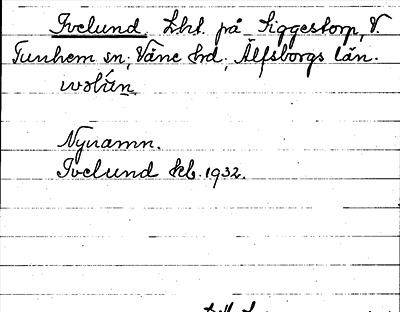 Ivelund. Lht. på Siggestorp, V.
Tunhem sn, Väne hd, Älfsborgs län.
Nynamn.
Ivelund kb. 1932.